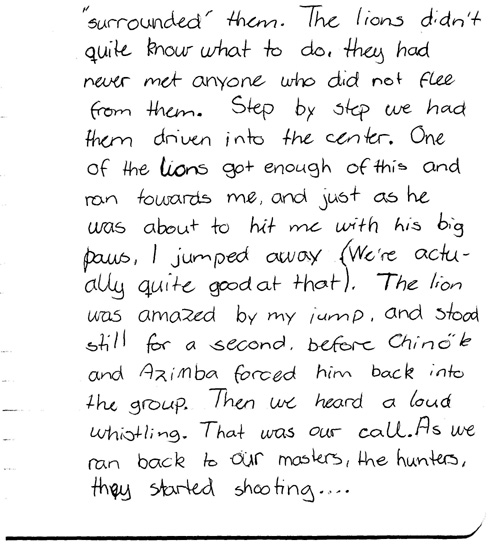 "surrounded" them. The lions didn't
quite know what to do, they had
never met anyone who did not flee
from them. Step by step we had
them driven into the center. One
of the lions got enough of this and
ran towards me, and just as he
was about to hit me with his big
paws, I jumped away (We're actu-
ally quite good at that). The lion
was amazed by my jump, and stood
still for a second, before Chinö'k
and Azimba forced him back into
the group. Then we heard a loud
whistling. That was our call. As we
ran back to our masters, the hunters,
they started shooting....